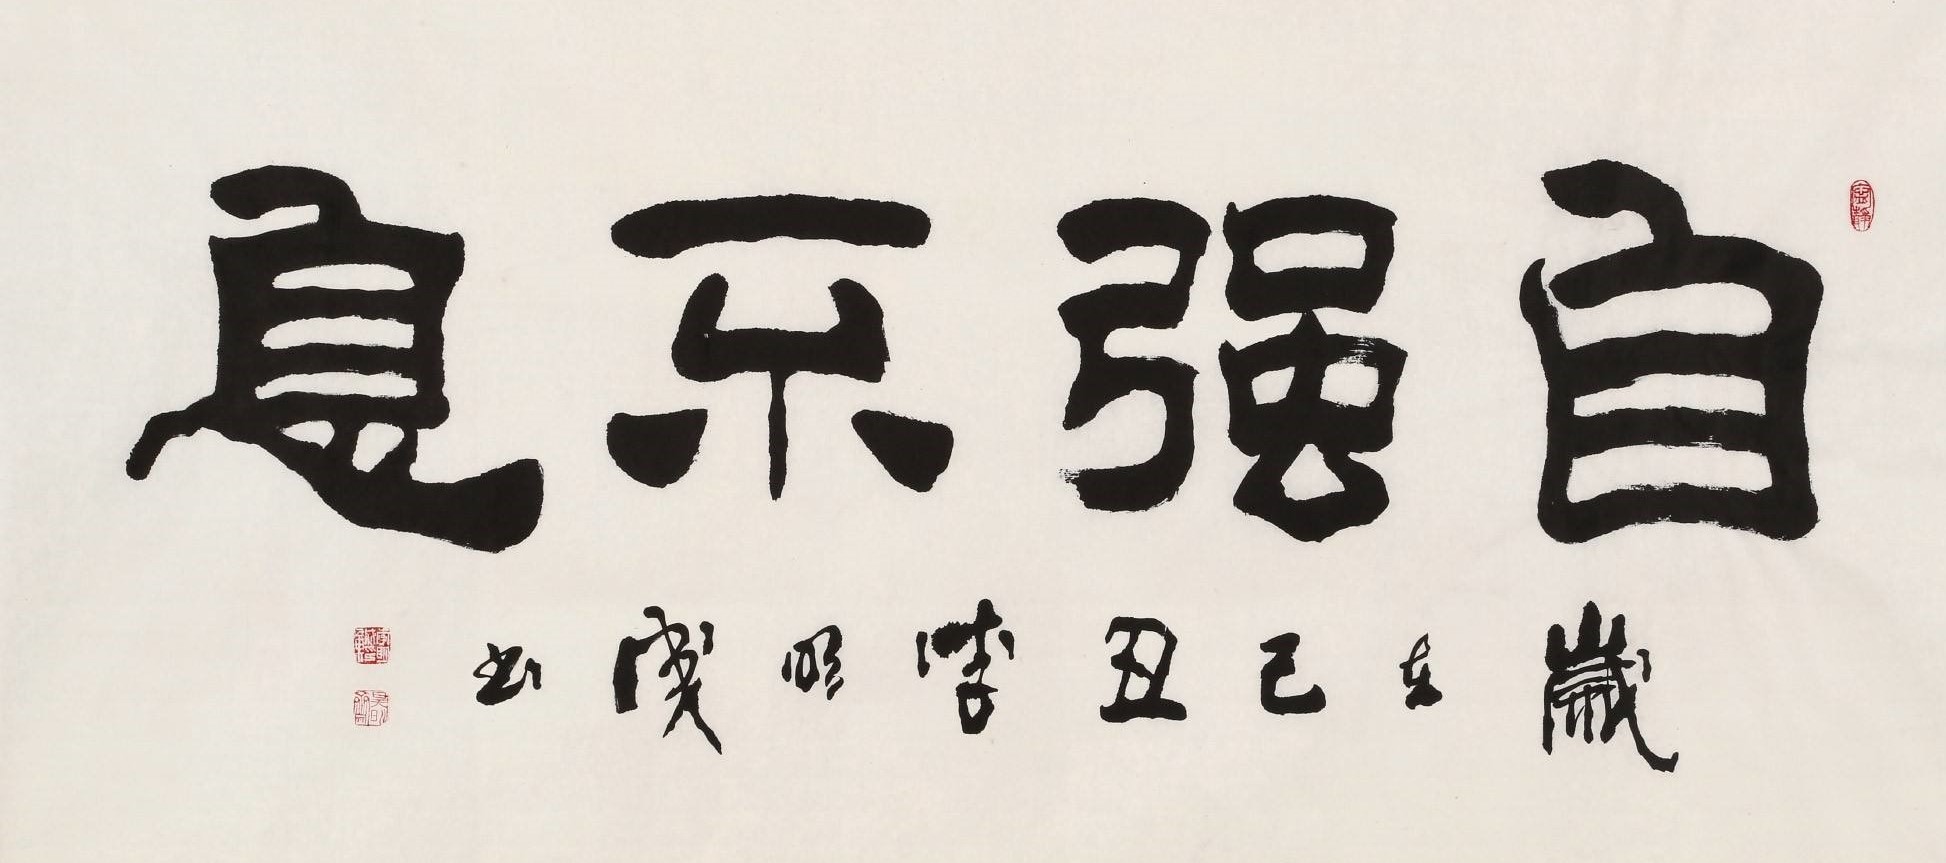 自强不息
歲在己丑李明實书